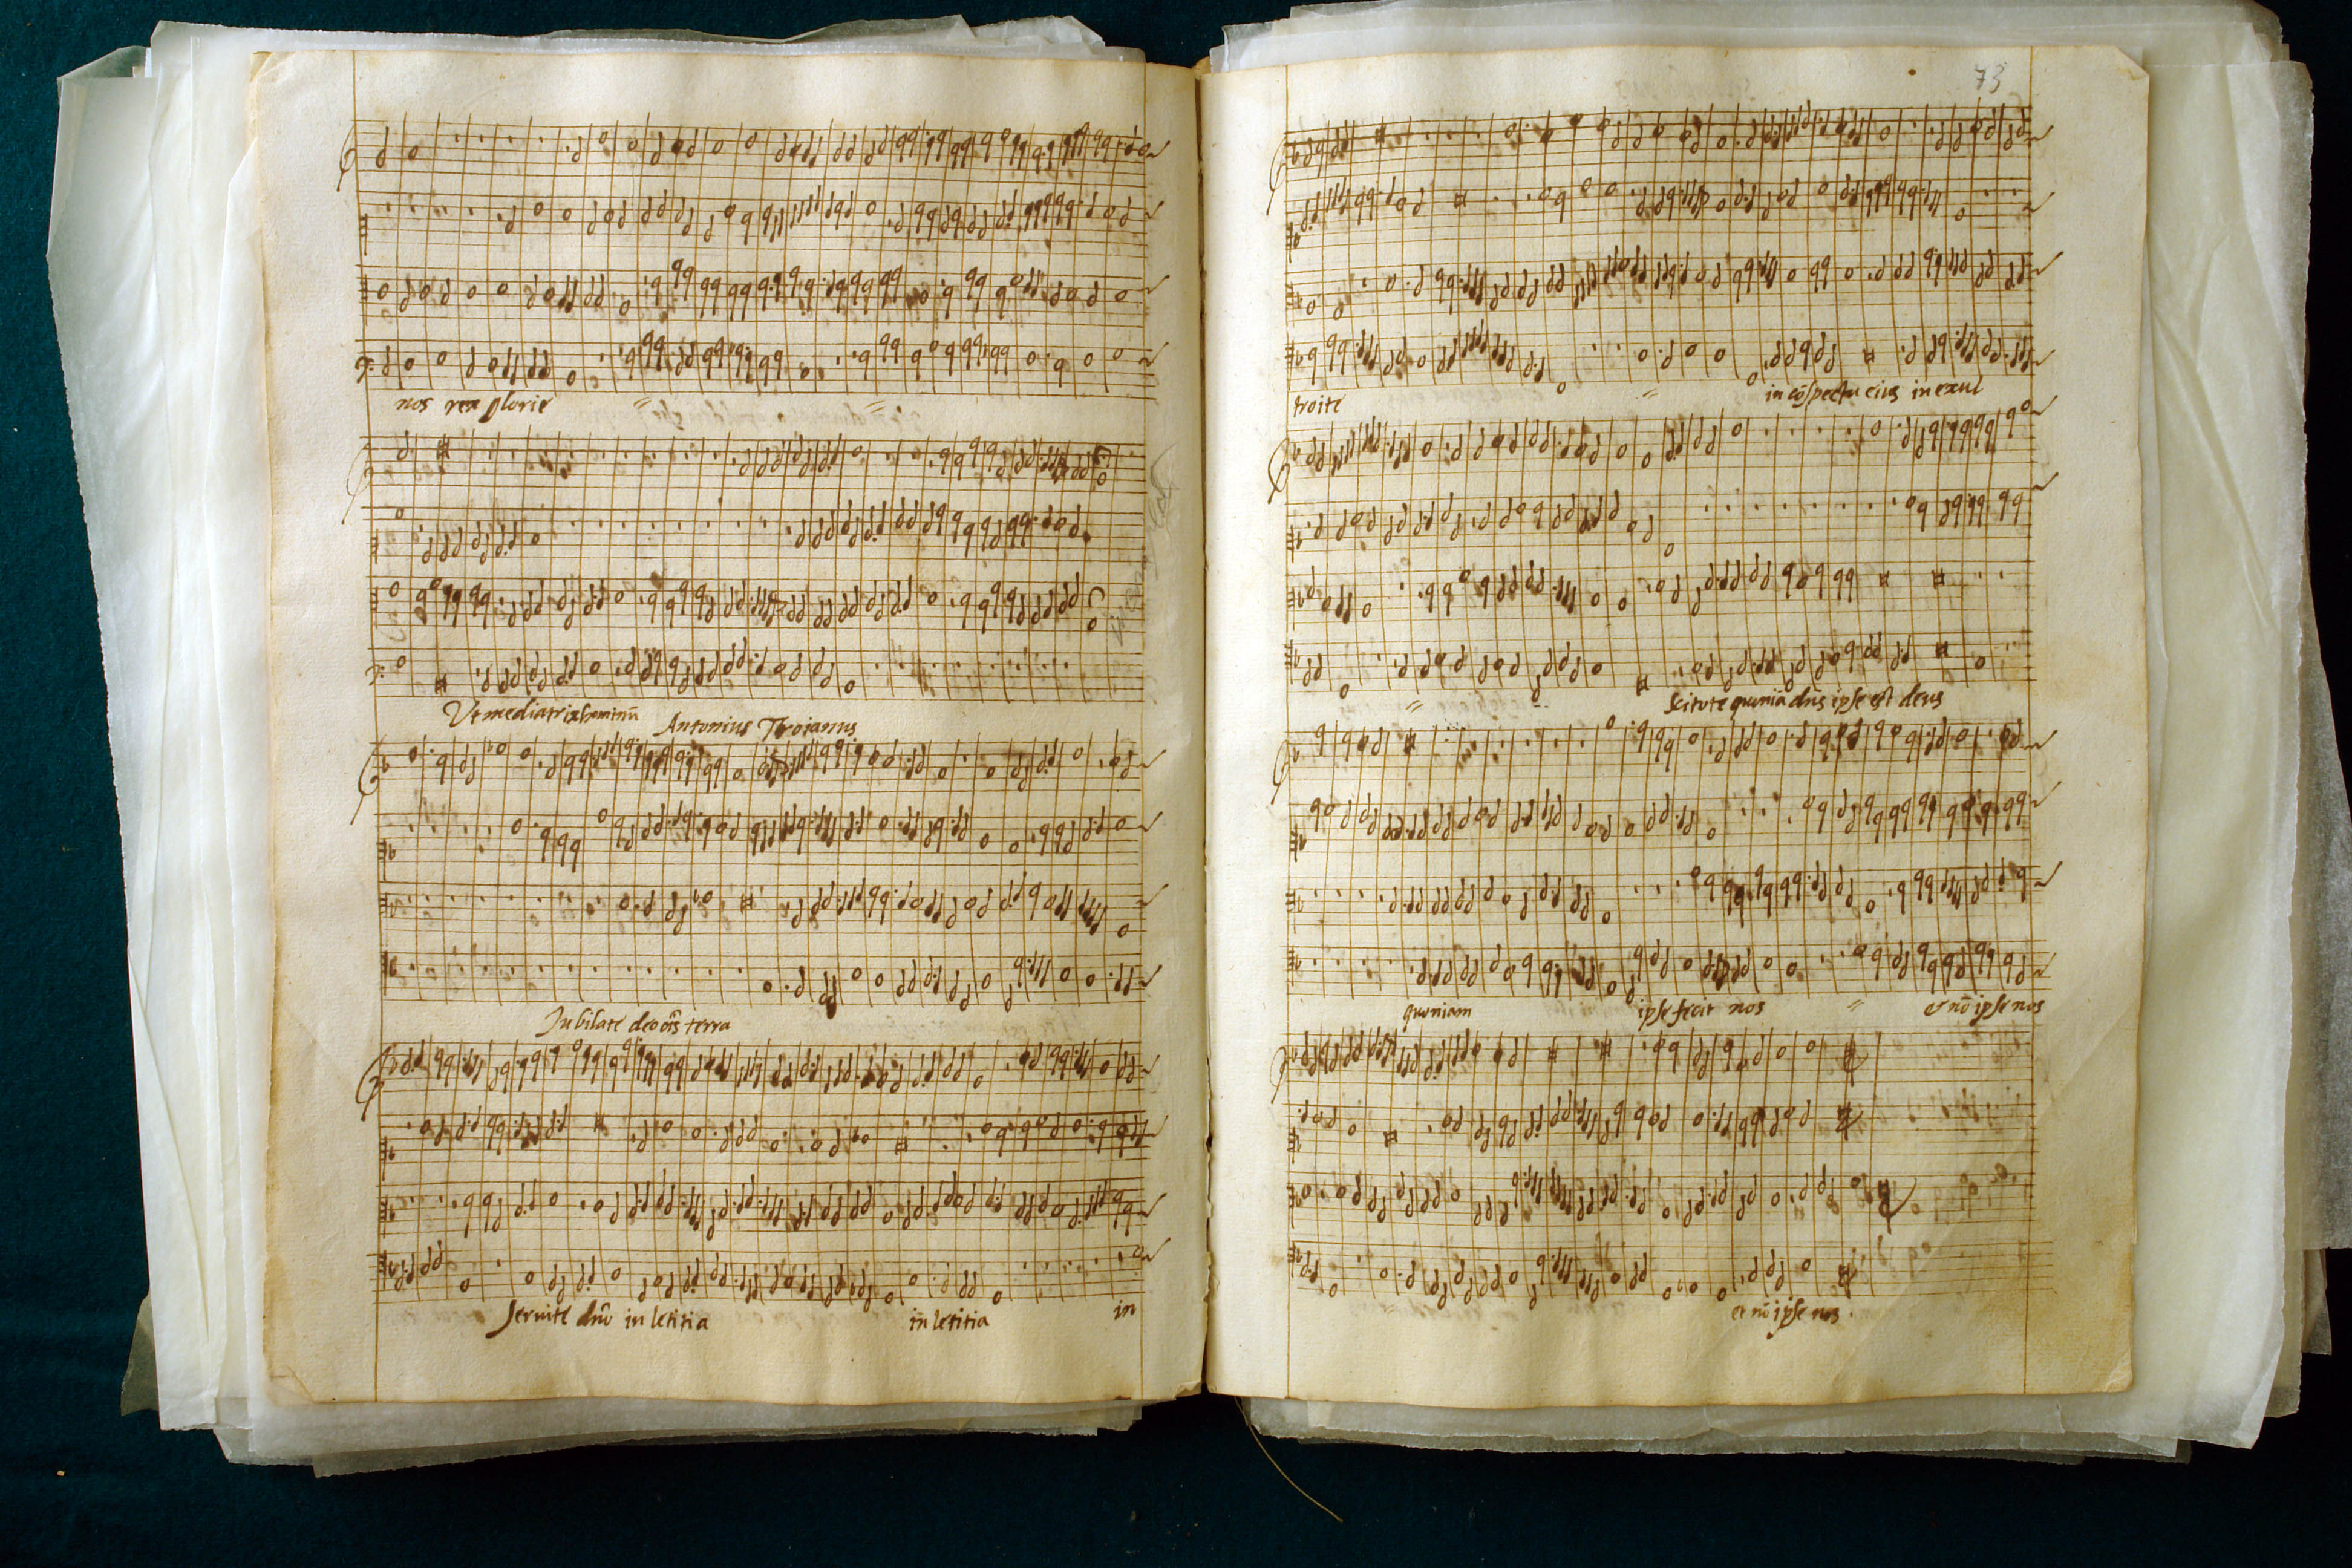 nos rex glorie
Ut mediatrix hominū
Antonius Troianus
Jubilate deo oīs terra
Servite dn̄o in letitia in letitia in
73
troite in cōspectu eius in exul
scitote quoniā dn̄s ipse est deus
quoniam ipse fecit nos et nō ipse nos
et nō ipse nos.